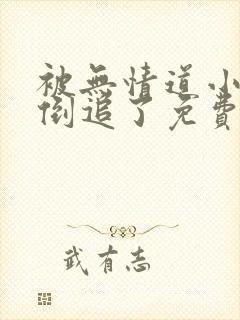 被無情道小
倒追了免費
武有志